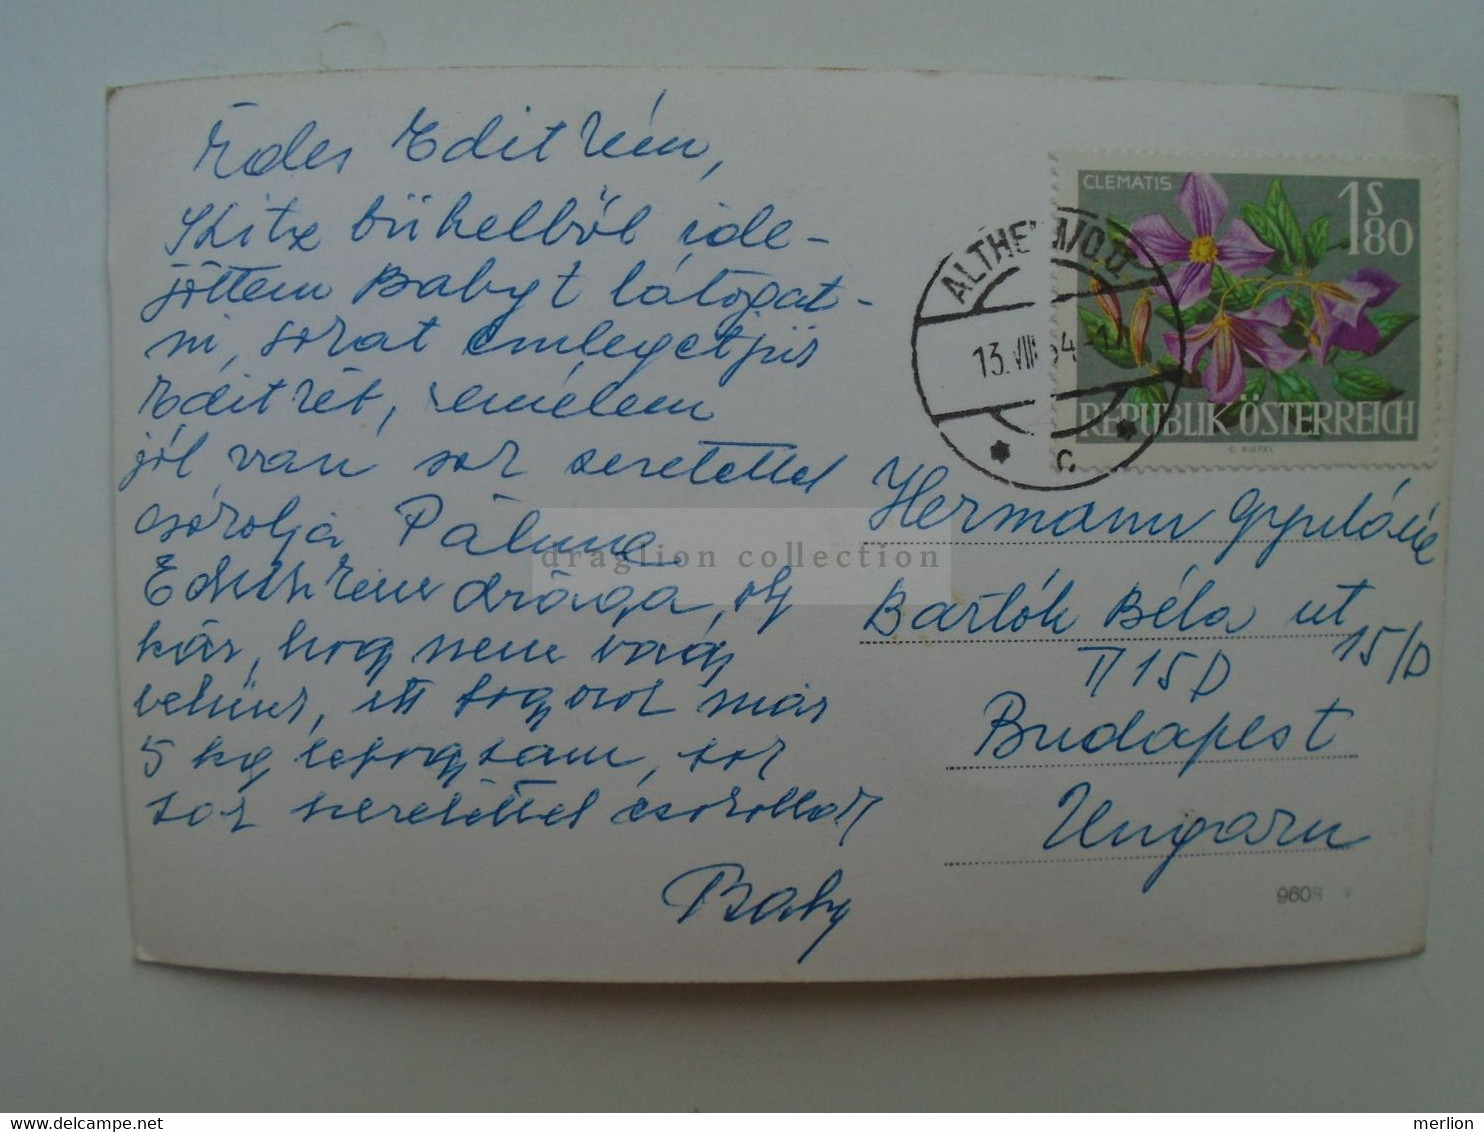 Édes Editkém,
Skitz bükelből ide-
jöttem Babyt látogat-
ni, sokat emlegetjük
Editkét, remélem
jól van, sok szeretettel
csókolja Pálma
Editkém drága, oly
kár, hogy nem vagy
velünk, itt fogyózol már
5 kg lefogytam, sok
sok szeretettel csókollak
Baby
CLEMATIS
1S 80
REPUBLIK ÖSTERREICH
ALTHEIM/O.Ö.
13.VIII.64
C
Hermann Gyuláné
Bartók Béla ut
15/D
II 15D
Budapest
Ungarn
9608
draglion collection
merlion
delcampe.net